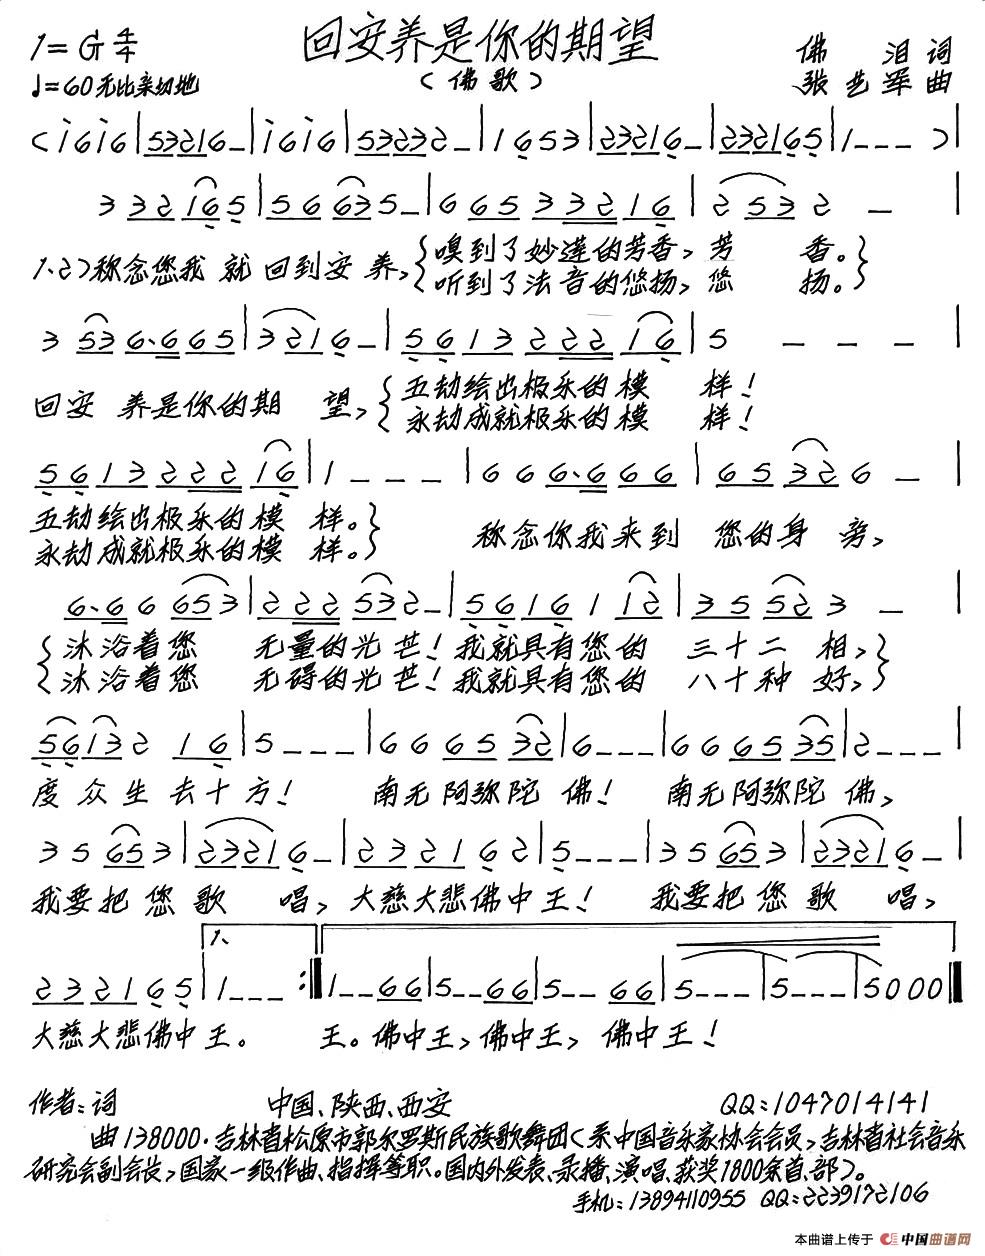 回安养是你的期望
1=G 4/4
(佛歌)
佛 泪 词
♩=60 无比亲切地
张艺军 曲
(i6i6|53216-|i6i6|53232-|1653|23216-|232165|1---)|
332165|566635-|66533221 6|2532-|
1.2)称念您我 就 回到安 养,{嗅到了妙莲的芳香,芳 香。}
听到了法音的悠扬,悠 扬。
3536.6665|3216-|561322216|5---|
回安 养是你的期 望,{五劫绘出极乐的模 样!
永劫成就极乐的模 样!
561322216|1---|666.6666|65326-|
五劫绘出极乐的模 样。}
永劫成就极乐的模 样。
称念你我来到 您的身 旁,
6.66653|222532-|5616112|355523-|
{沐浴着您 无量的光芒!我就具有您的 三十二 相,}
沐浴着您 无碍的光芒!我就具有您的 八十种 好,
5613216|5---|666532|6---|666535|2---|
度众生去十方! 南无阿弥陀 佛! 南无阿弥陀 佛,
35653|23216-|232162|5---|35653|23216-|
我要把您歌 唱,大慈大悲佛中王! 我要把您歌 唱,
1.
232165|1---:|1--66|5--66|5--66|5---|5---|5000|
大慈大悲佛中王。 王。佛中王,佛中王, 佛中王!
作者:词 中国、陕西、西安 QQ:1047014141
曲138000.吉林省松原市郭尔罗斯民族歌舞团(系中国音乐家协会会员,吉林省社会音乐
研究会副会长,国家一级作曲、指挥等职。国内外发表、录播、演唱、获奖1800余首、部)。
手机:13894110955 QQ:2239172106
本曲谱上传于 中国曲谱网